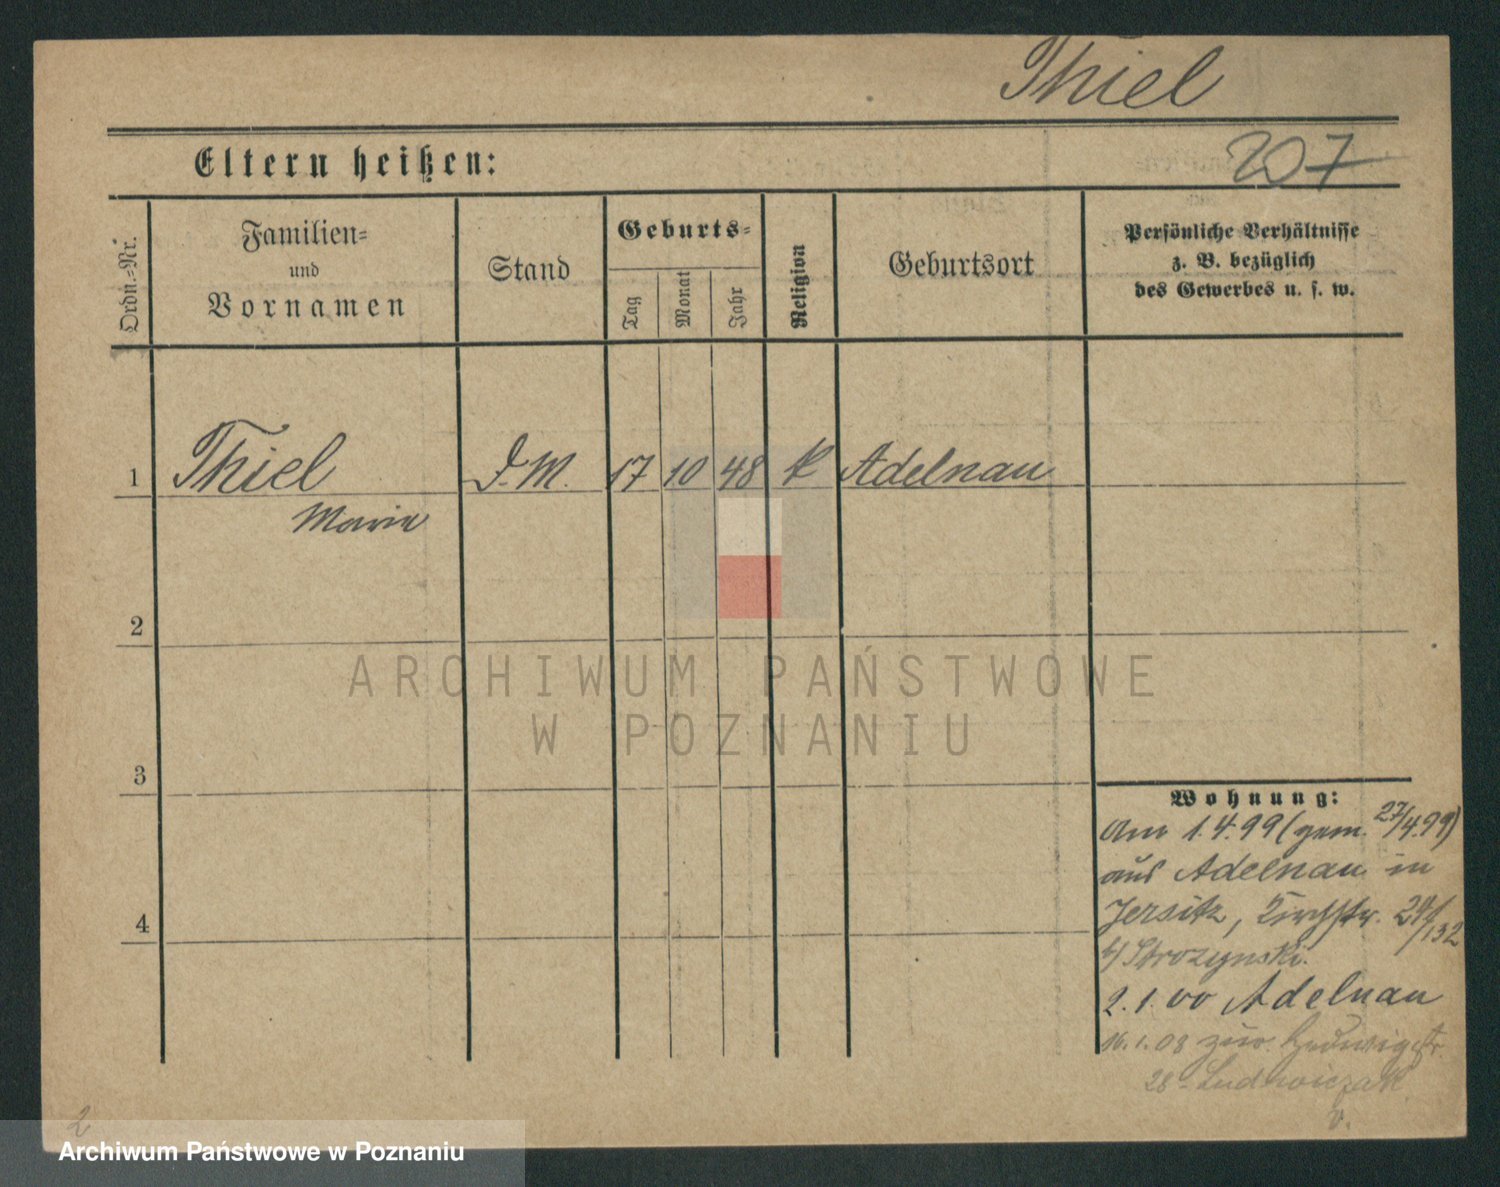 Thiel
207
Eltern heißen:
Ordn.=Nr.
Familien=
und
Vornamen
Stand
Geburts=
Tag
Monat
Jahr
Religion
Geburtsort
Persönliche Verhältnisse
z. B. bezüglich
des Gewerbes u. s. w.
1
Thiel
D. M.
17
10
48
k
Adelnau
Marie
2
ARCHIWUM PAŃSTWOWE
W POZNANIU
3
Wohnung:
Am 1.4.99 (gem. 27/4.99)
aus Adelnau in
Jersitz, Kirchstr. 24/132
b/ Strozynski.
2.1.00 Adelnau
16.1.08 zur. Hedwigstr.
28 - Ludwiczak
v.
4
2
Archiwum Państwowe w Poznaniu